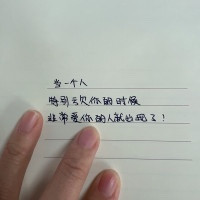 当一个人
特别亏欠你的时候
非常爱你的人就出现了！